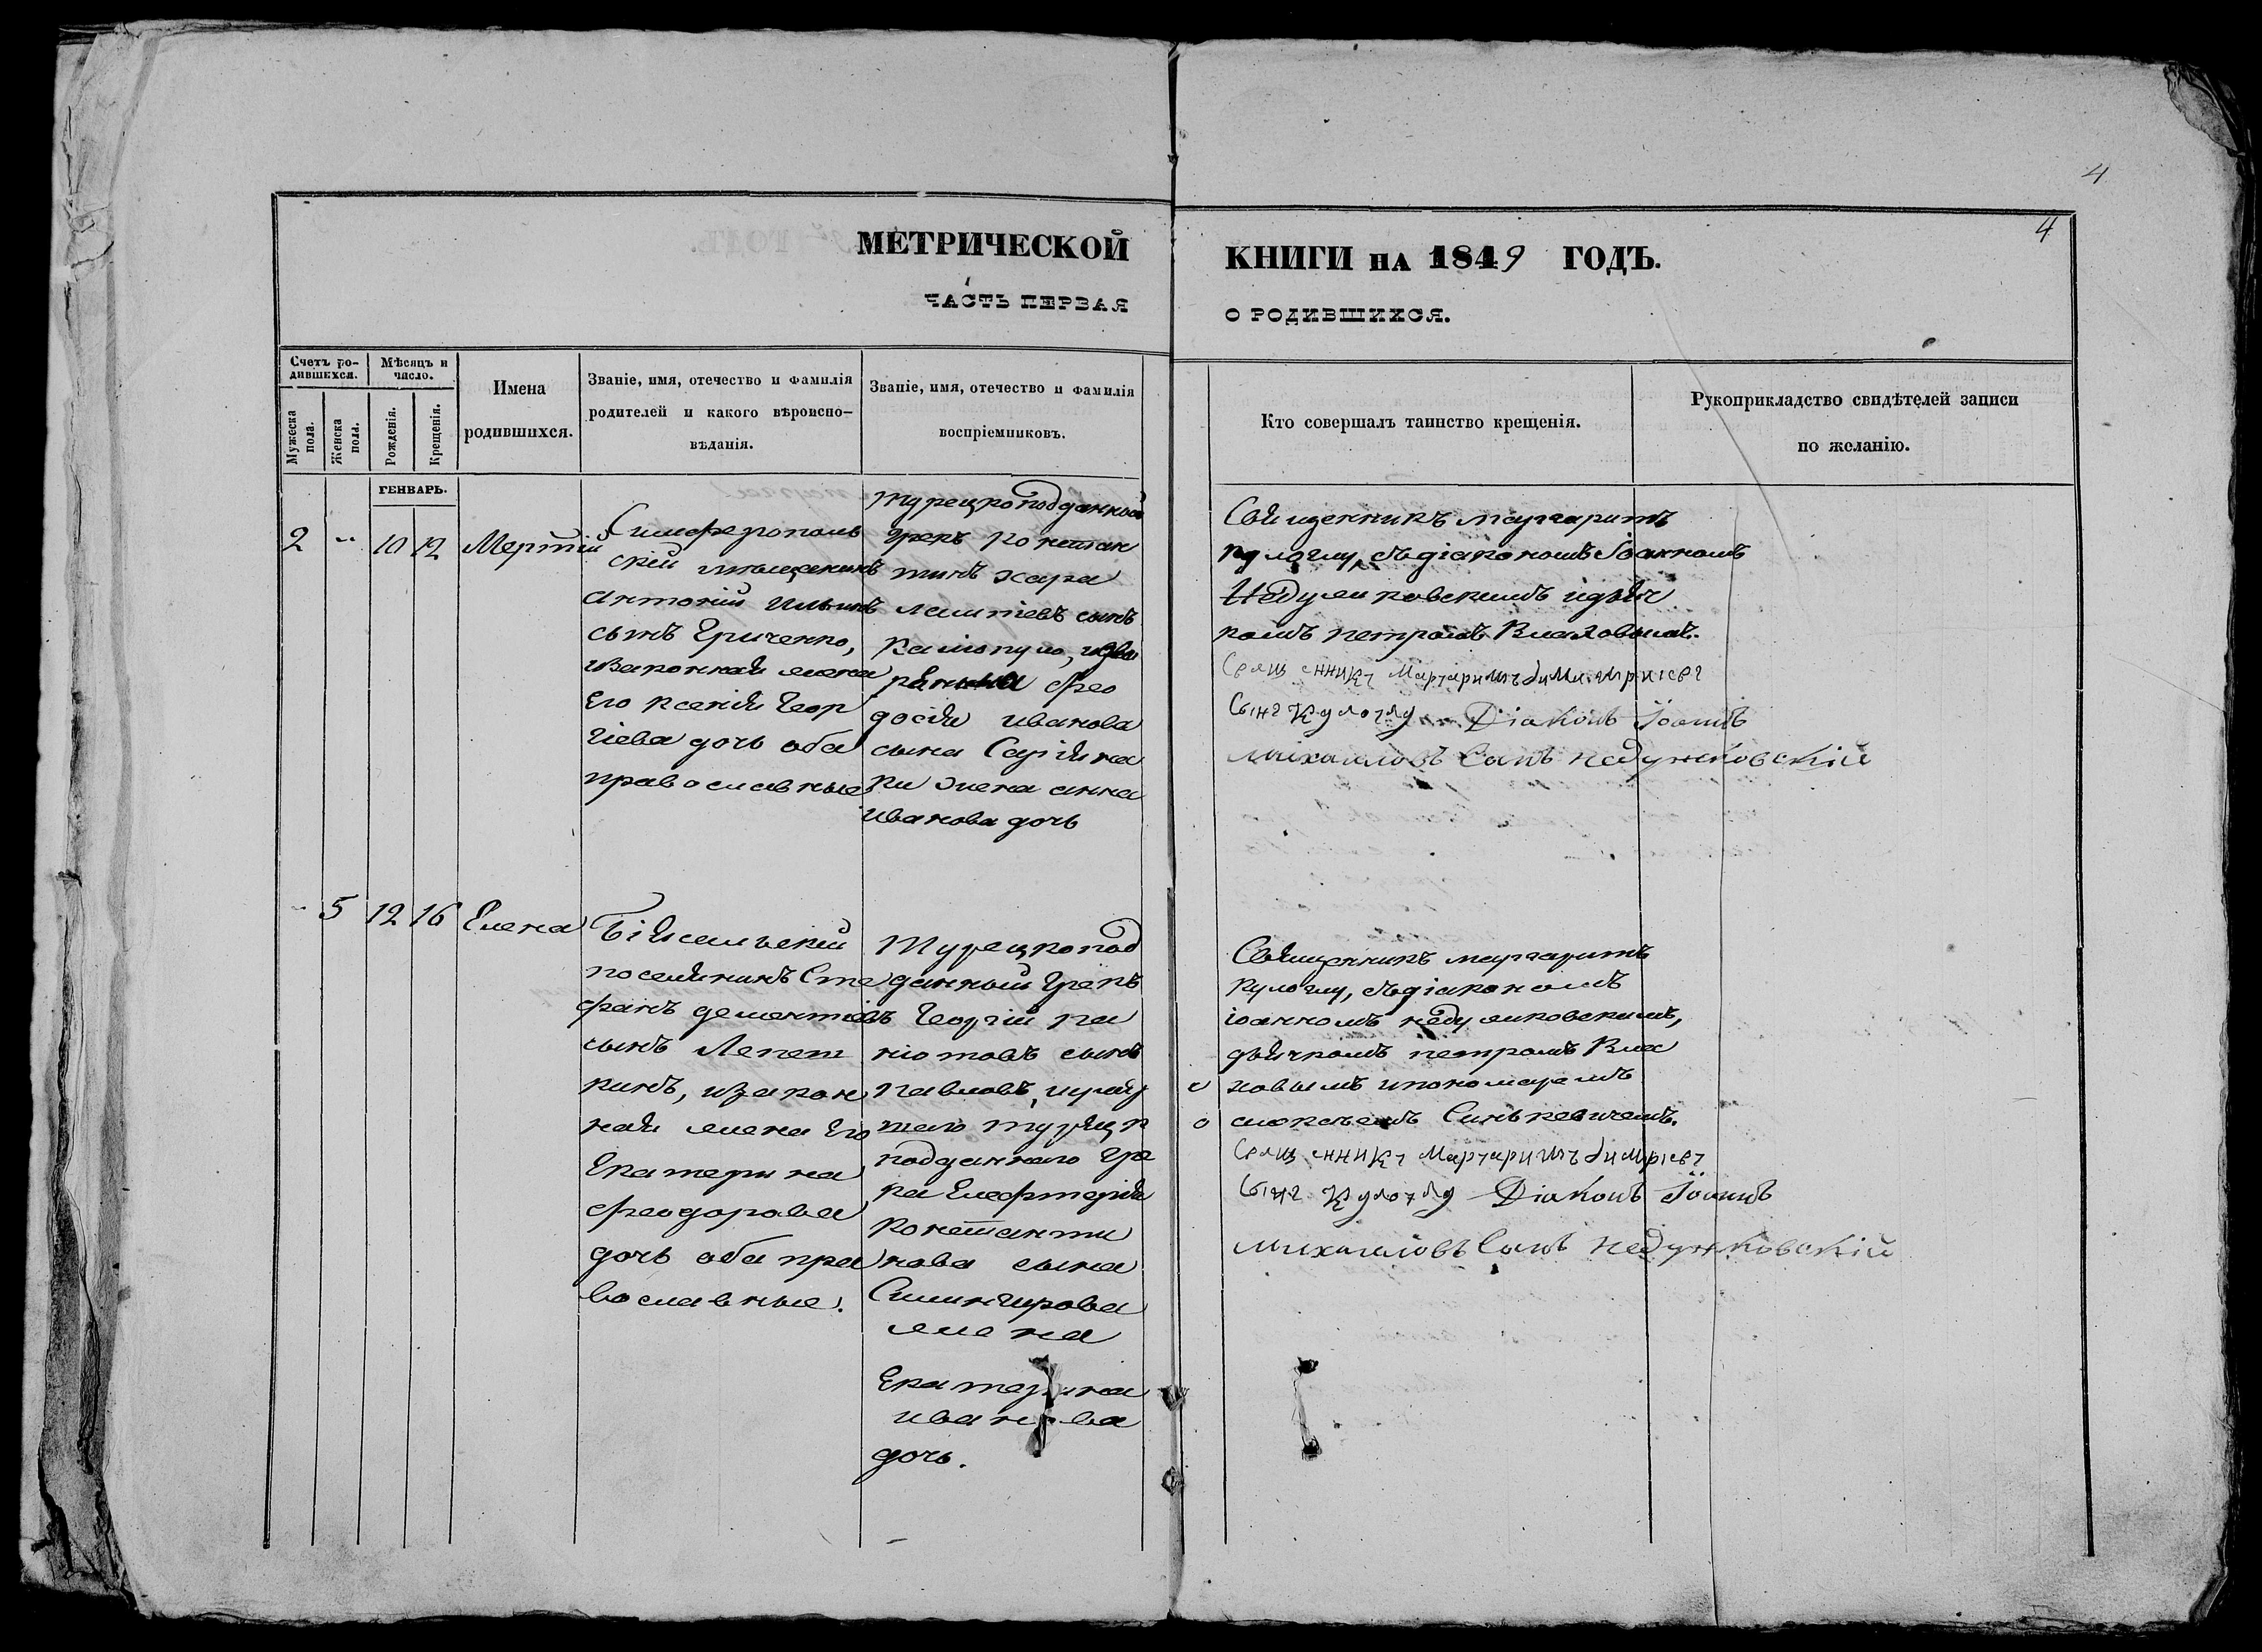 4
4
МЕТРИЧЕСКОЙ
КНИГИ НА 1849 ГОДЪ.
ЧАСТЬ ПЕРВАЯ
О РОДИВШИХСЯ.
Счетъ ро-
дившихся.
Мѣсяцъ и
число.
Мужеска
пола.
Женска
пола.
Рожденія.
Крещенія.
Имена
родившихся.
Званіе, имя, отечество и фамилія
родителей и какого вѣроиспо-
вѣданія.
Званіе, имя, отечество и фамилія
воспріемниковъ.
Кто совершалъ таинство крещенія.
Рукоприкладство свидѣтелей записи
по желанію.
ГЕНВАРЬ.
2 " 10 12
Симферополь
скій мѣщанинъ
антоній ильинъ
сынъ Гриченко,
изаконная жена
Его Ксенія Геор
гіева дочь оба
православные
турецкоподданный
грекъ Констан
тинъ хара
лампіевъ сынъ
Фео
досія иванова
сына
жена анна
иванова дочь
Священникъ маргаритъ
кулоглу, съдіакономъ Іоанномъ
Недужковскимъ идья
комъ петромъ
Священникъ Маргаритъ
Сынъ Кулоглу Діаконъ Іоаннъ
михаиловъ Сынъ недужковскій
" 5 12 16 Елена
Біясальскій
поселянинъ Сте
фанъ дементіевъ
сынъ Лепеш
кинъ, изакон
ная жена Его
Екатерина
феодорова
дочь оба пра
вославные.
Турецкопод
данный Грекъ
Георгій па
сынъ
Павловъ,
подданнаго Гре
ка Елефтерія
Константи
нова сына
жена
Екатерина
иванова
дочь.
Священникъ маргаритъ
кулоглу, съдіакономъ
іоанномъ недужковскимъ,
дьячкомъ петромъ Вла
совымъ ипономаремъ
Синькевичемъ.
Священникъ Маргаритъ димтріевъ
Сынъ Кулоглу Діаконъ Іоаннъ
михаиловъ Сынъ недужковскій